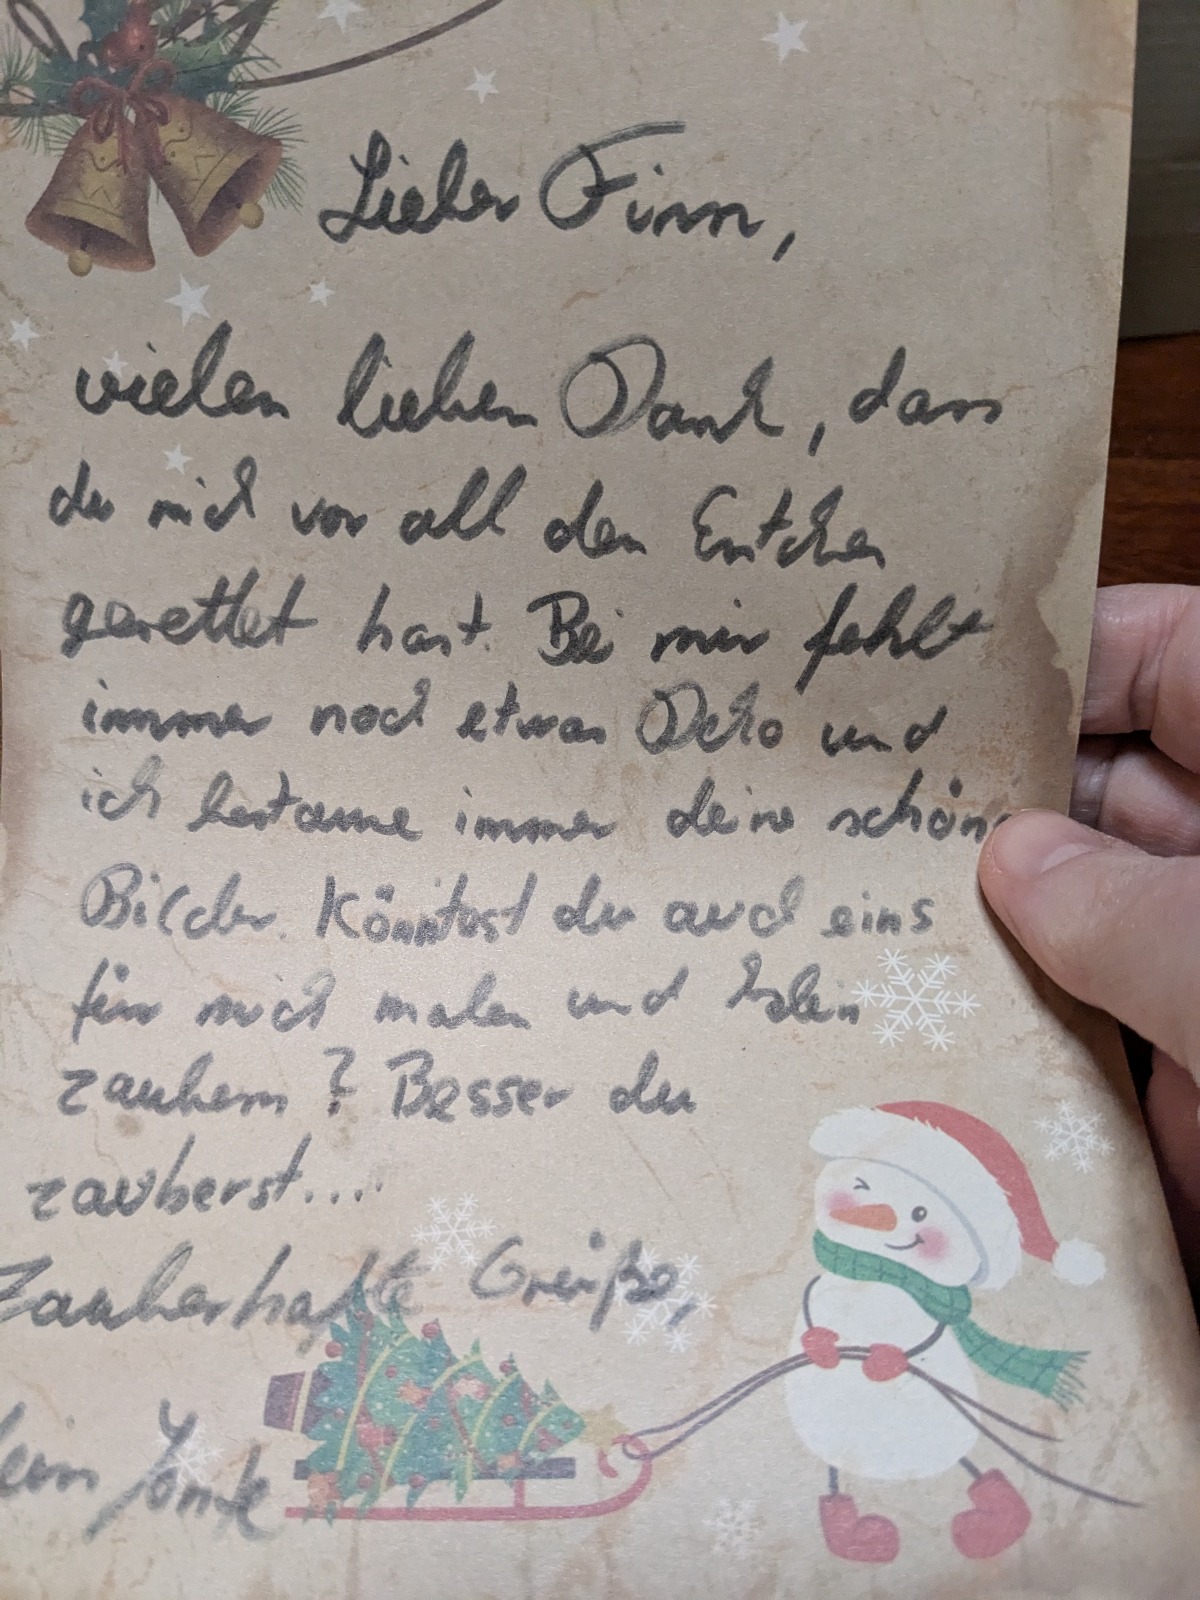 Lieber Finn,
vielen lieben Dank, dass
du mich vor all den Entchen
gerettet hast. Bei mir fehlt
immer noch etwas Deko und
ich bestaune immer deine schöne
Bilder. Könntest du auch eins
für mich malen und klein
zaubern? Besser du
zauberst....
Zauberhafte Grüße,
dein Jonte